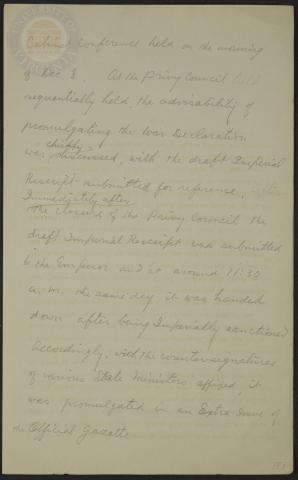 Cabinet Conference held on the morning
of Dec 8. At the Privy Council held
sequentially held, the advisability of
promulgating the War Declaration
chiefly
was discussed, with the draft Imperial
Rescript submitted for reference.
Immediately after
The closure of the Privy Council the
draft Imperial Rescript was submitted
to the Emperor and at around 11:30
a.m. the same day it was handed
down after being Imperially sanctioned
Accordingly, with the countersignatures
of various State Ministers affixed, it
was promulgated in an Extra issue of
the Official Gazette